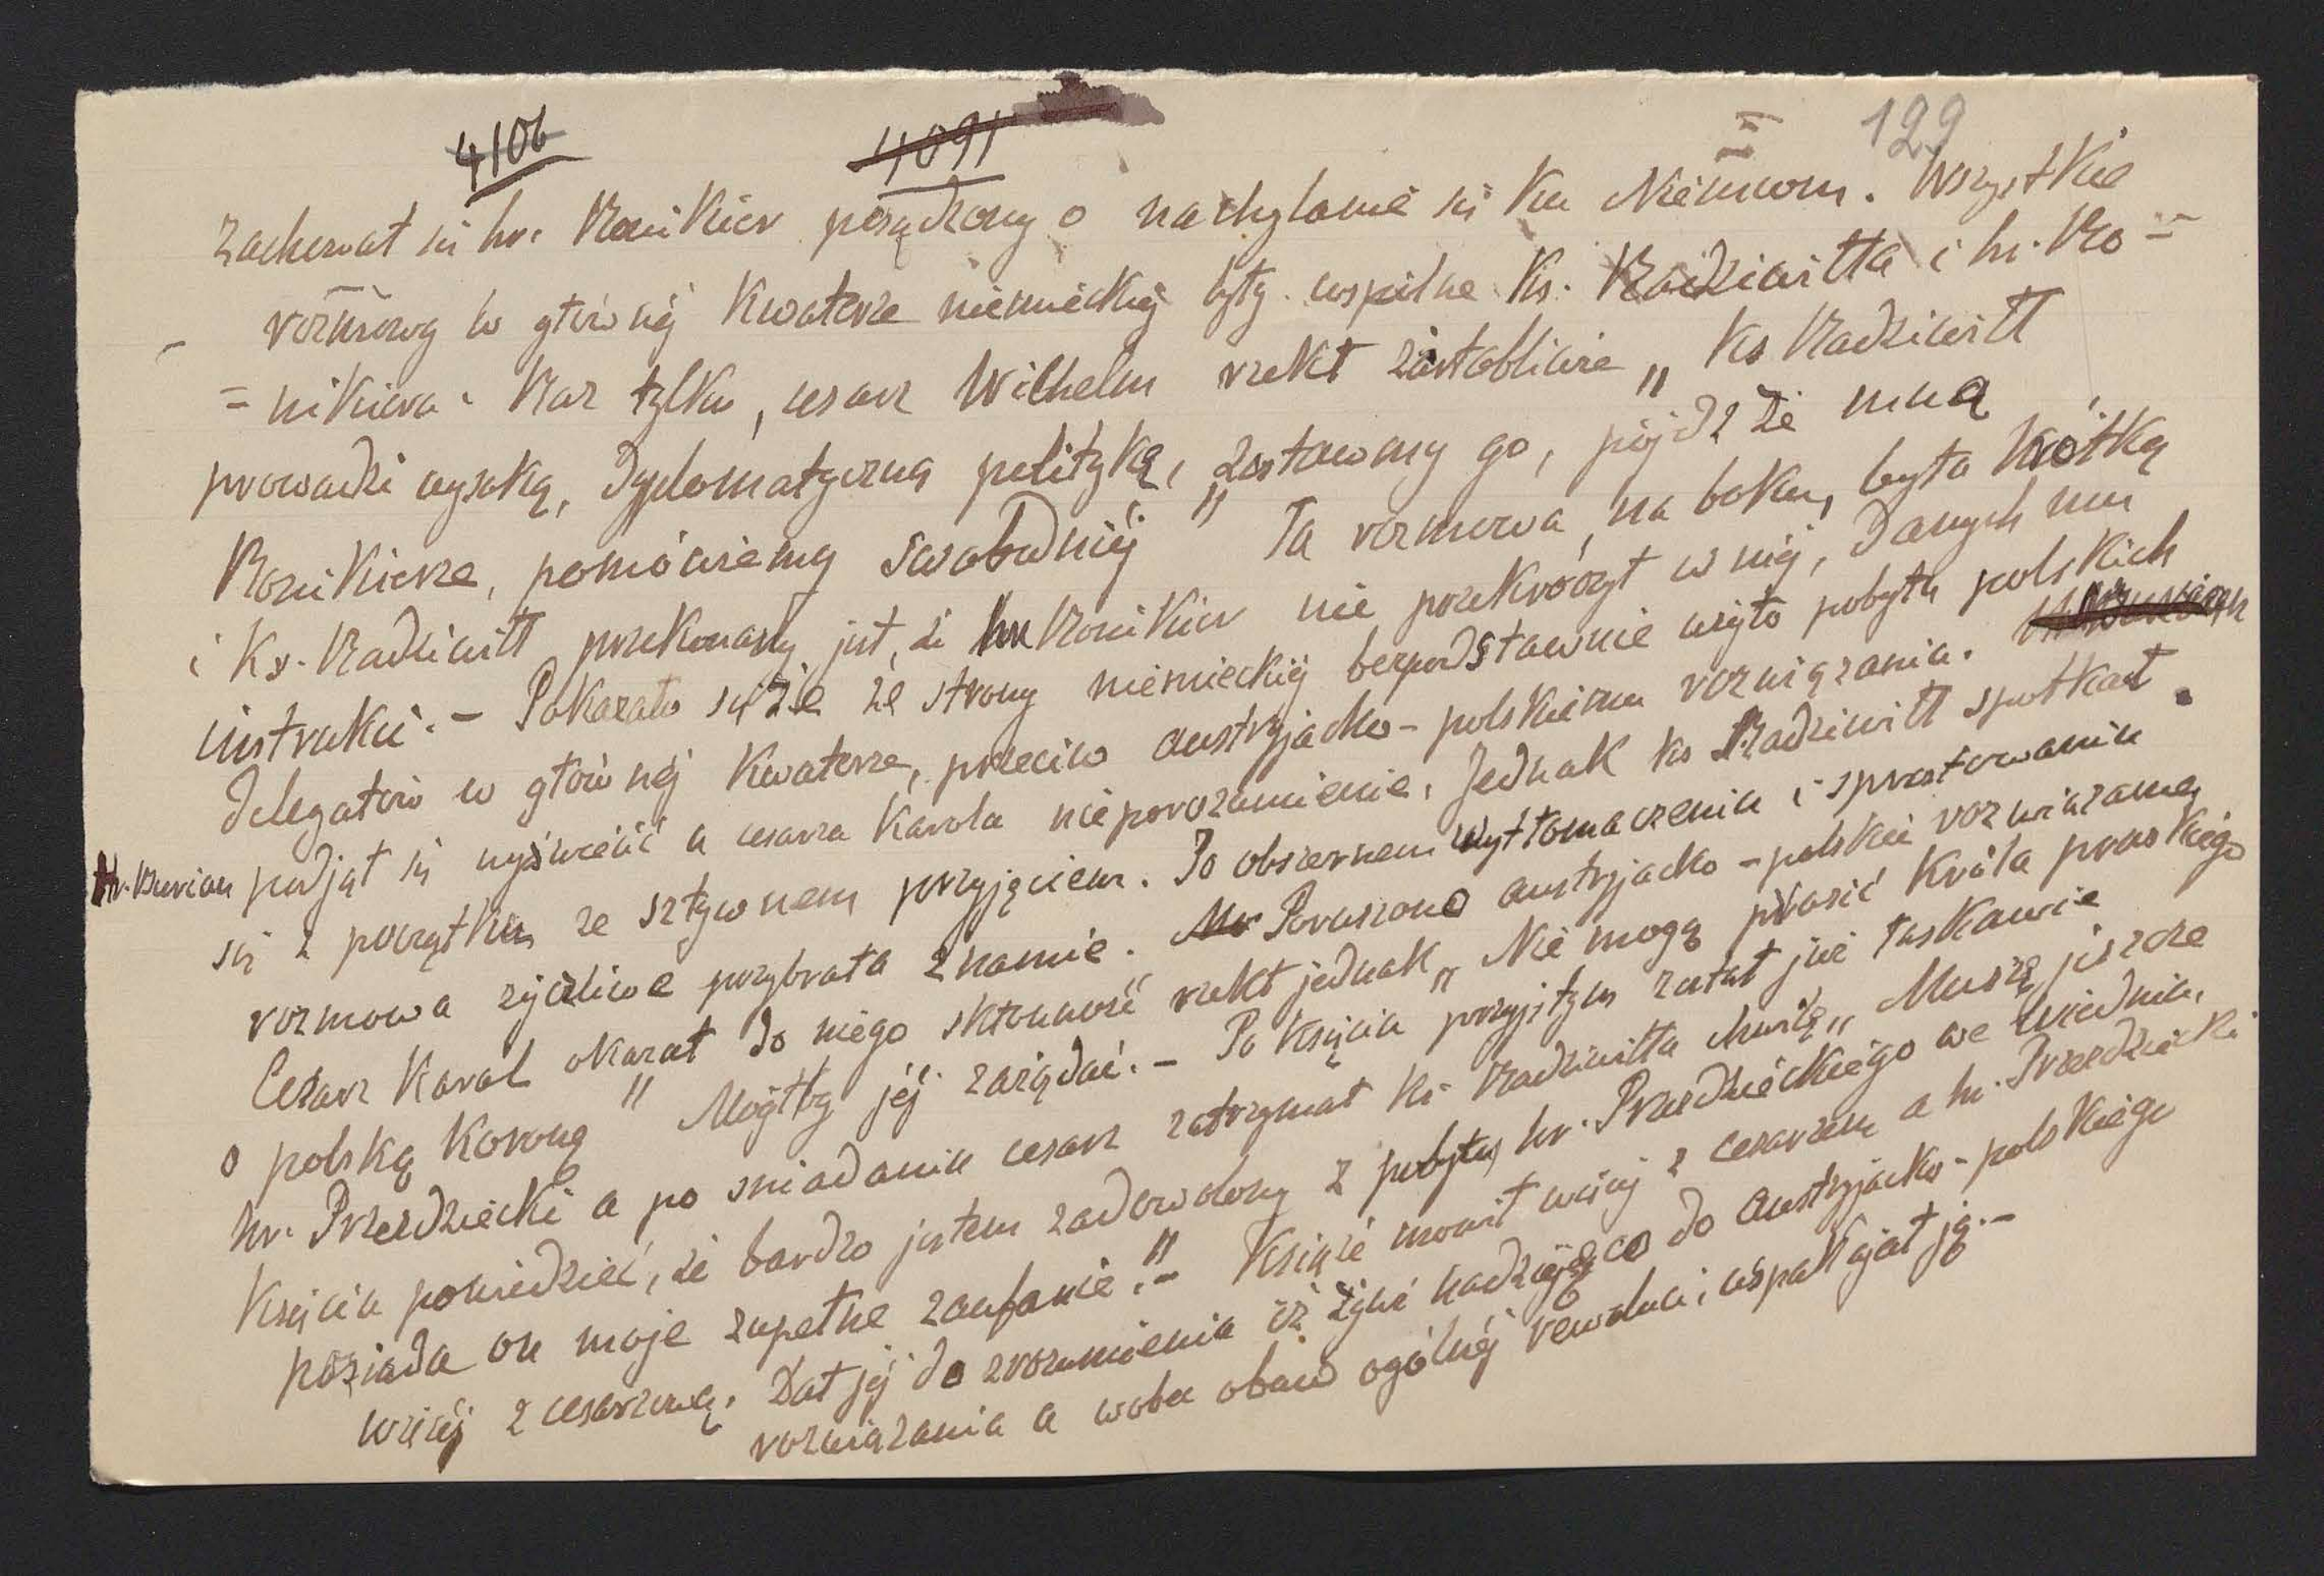 4106 4091 129
zachował się hr. Ronikier posądzony o nachylanie się ku Niemcom. Wszystkie
rozmowy w głównéj Kwaterze niemieckiéj były wspólne Ks. Radziwiłła i hr. Ro=
=nikiera. Raz tylko, cesarz Wilhelm rzekł żartobliwie „Ks Radziwiłł
prowadzi wysoką, dyplomatyczną politykę, zostawmy go, pójdź ze mną
Ronikierze, pomówiemy swobodniéj" Ta rozmowa, na boku, była krótką
i Ks. Radziwiłł przekonany jest, że hr Ronikier nie przekroczył w niéj, danych mu
instrukcii. – Pokazało się że ze strony niemieckiéj bezpodstawnie użyto pobytu polskich
delegatów w głównéj Kwaterze, przeciw austryjacko-polskiemu rozwiązaniu.
Hr. Burian podjął się wyświecić u cesarza Karola nieporozumienie. Jednak ks Radziwiłł spotkał
się z początku ze sztywnem przyjęciem. Po obszernem wytłomaczeniu i sprostowaniu
rozmowa życzliwe przybrała znamie. Poruszono austryjacko-polskie rozwiązanie,
Cesarz Karol okazał do niego skłonność rzekł jednak „Nie mogę prosić Króla pruskiego
o polską koronę" Mógłby jéj zażądać. – Po Księciu przyjętym został już łaskawie
hr. Przezdziecki a po sniadaniu cesarz zatrzymał Ks Radziwiłła chwilę „Muszę jeszcze
Księciu powiedzieć, że bardzo jestem zadowolony z pobytu hr. Przezdzieckiego we Wiedniu,
posiada on moje zupełne zaufanie." – Książe mówił więcéj z cesarzem a hr. Przezdziecki
więcéj z cesarzową. Dał jéj do zrozumienia iż żywi nadzieję co do austryjacko-polskiego
rozwiązania a wobec obaw ogólnéj rewolucii, uspakajał ją. –